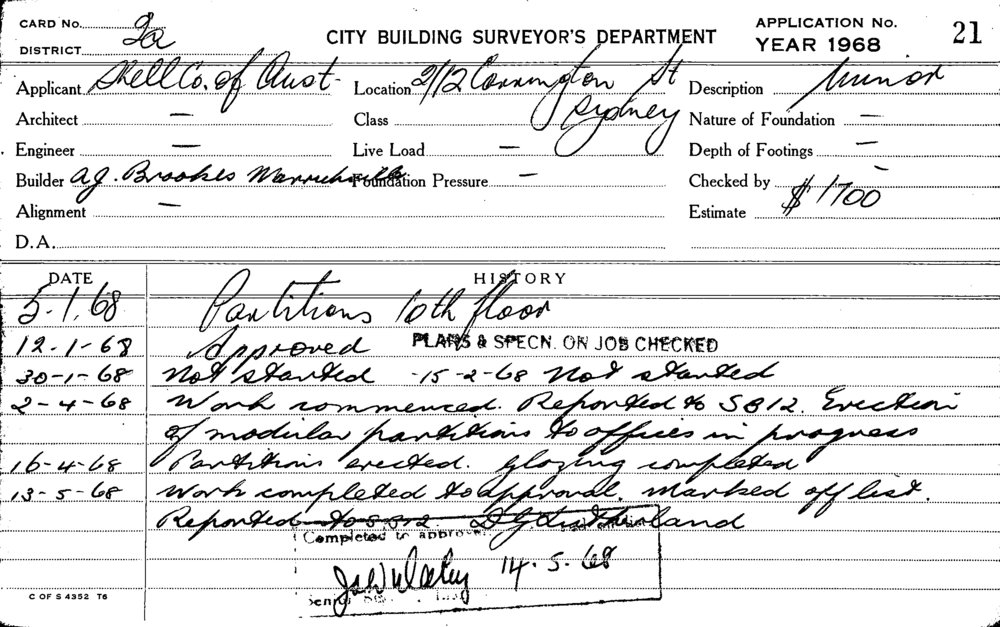 CARD No. 2a
DISTRICT
CITY BUILDING SURVEYOR'S DEPARTMENT
APPLICATION No. 21
YEAR 1968
Applicant Shell Co. of Aust.
Location 2/12 Carrington St Sydney
Description Minor
Architect —
Class
Nature of Foundation —
Engineer —
Live Load —
Depth of Footings —
Builder A.J. Brookes Marrickville
Foundation Pressure —
Checked by —
Alignment —
Estimate $1700
D.A.
DATE HISTORY
5.1.68 Partitions 10th floor
12-1-68 Approved PLANS & SPECN. ON JOB CHECKED
30-1-68 Not started -15-2-68 Not started
2-4-68 Work commenced. Reported to SB12. Erection
of modular partitions to offices in progress
16-4-68 Partitions erected. Glazing completed
13-5-68 Work completed to approval. Marked off list.
Reported to SB12.
Completed to approval
14.5.68
Senior
C OF S 4352 T6